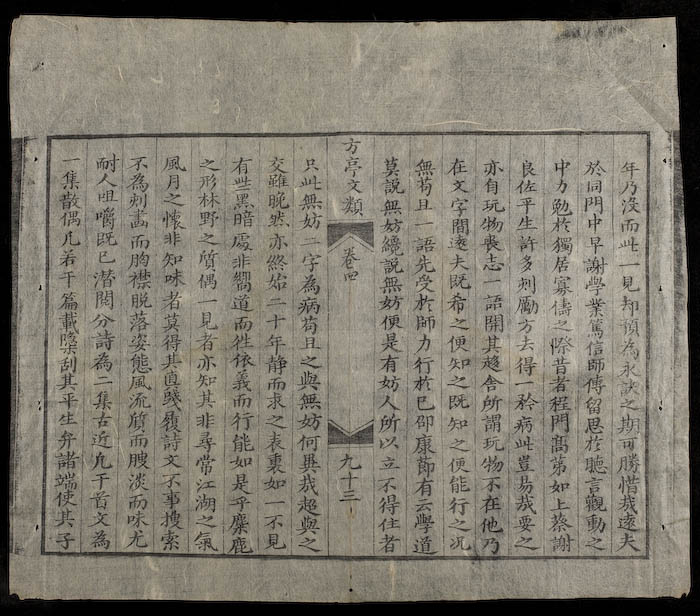 年乃沒而此一見却預為永訣之期可勝惜哉遠夫
於同門中早謝學業篤信師傳留思於聽言觀動之
中力勉於獨居寡儔之際昔者程門髙弟如上蔡謝
良佐平生許多刺勵方去得一矜病此豈易哉要之
亦自玩物喪志一語開其趍舍所謂玩物不在他乃
在文字間遠夫既希之便知之既知之便能行之况
無茍且一語先受於師力行於已卲康莭有云學道
莫說無妨纔說無妨便是有妨人所以立不得住者
方亭文類 卷四 九十三
只此無妨二字為病茍且之與無妨何異哉超與之
交雖晚然亦終始二十年静而求之表裏如一不見
有些黑暗處非嚮道而徃依義而行能如是乎麋鹿
之形林野之質偶一見者亦知其非尋常江湖之氣
風月之懷非知味者莫得其真踐履詩文不事搜索
不為刺畫而胸襟脱落姿態風流質而腴淡而味尤
耐人咀嚼既已潜閱分詩為二集古近凢千首文為
一集散偶凢若干篇載檃刮其平生弁諸端使其子